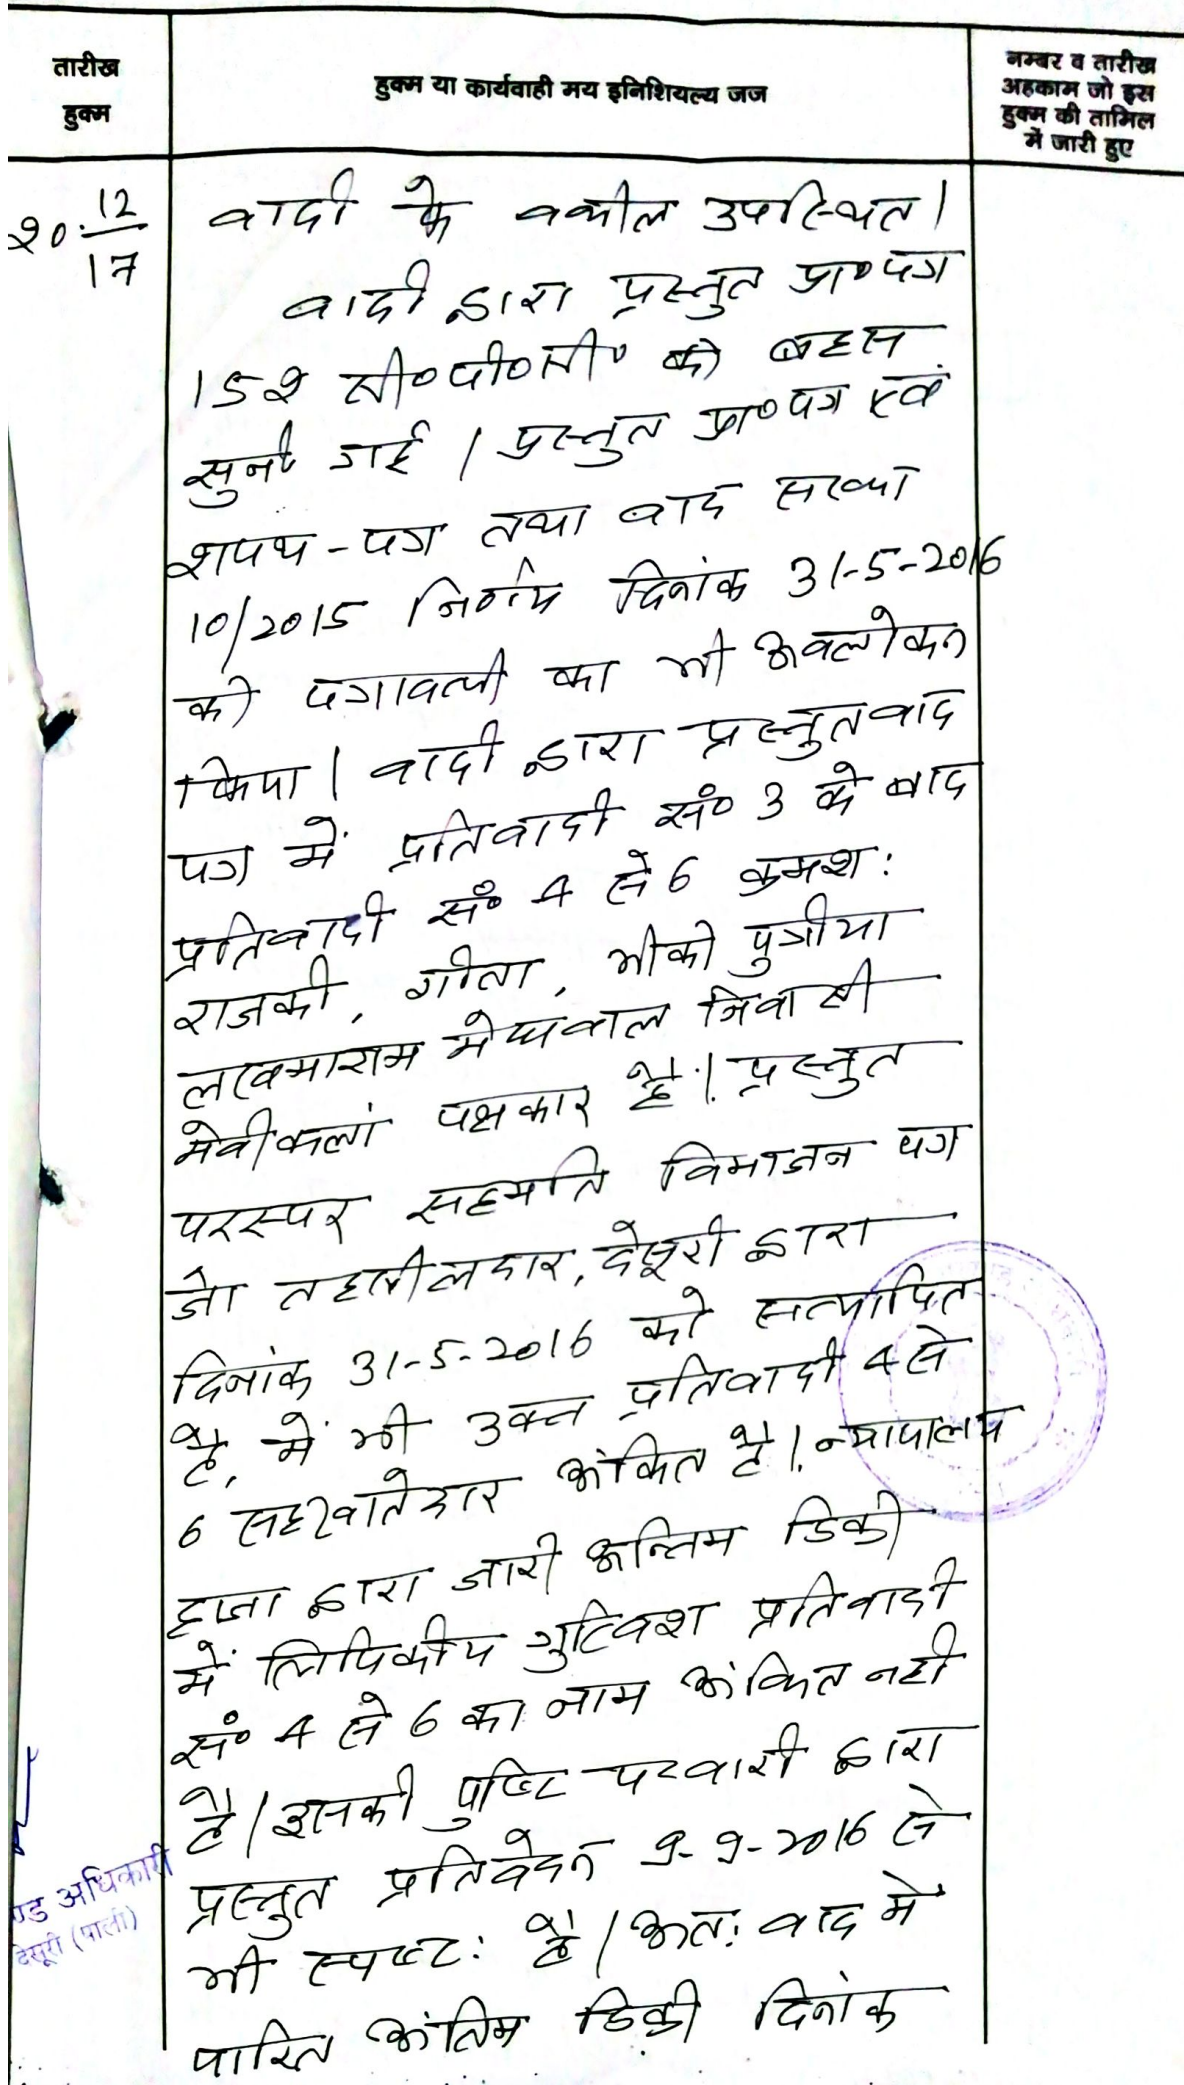 तारीख
हुक्म
हुक्म या कार्यवाही मय इनिशियल्य जज
नम्बर व तारीख
अहकाम जो इस
हुक्म की तामिल
में जारी हुए
20.12
17
वादी के वकील उपस्थित।
वादी द्वारा प्रस्तुत प्रा०पत्र
152 सी०पी०सी० की बहस
सुनी गई। प्रस्तुत प्रा०पत्र एवं
शपथ-पत्र तथा वाद संख्या
10/2015 निर्णय दिनांक 31-5-2016
की पत्रावली का भी अवलोकन
किया। वादी द्वारा प्रस्तुत वाद
पत्र में प्रतिवादी सं० 3 के बाद
प्रतिवादी सं० 4 से 6 क्रमश:
राजकी, गीता, भीकी पुत्रीया
लखमाराम मेघवाल निवासी
मेवीकलां पक्षकार है। प्रस्तुत
परस्पर सहमति विभाजन पत्र
जो तहसीलदार, देसूरी द्वारा
दिनांक 31-5-2016 को सत्यापित
है, में भी उक्त प्रतिवादी 4 से
6 सहखातेदार अंकित है। न्यायालय
हाजा द्वारा जारी अन्तिम डिक्री
में लिपिकीय त्रुटिवश प्रतिवादी
सं० 4 से 6 का नाम अंकित नही
है। इसकी पुष्टि पटवारी द्वारा
प्रस्तुत प्रतिवेदन 9-9-2016 से
भी स्पष्ट: है। अत: वाद में
पारित अंतिम डिक्री दिनांक
ण्ड अधिकारी
देसूरी (पाली)